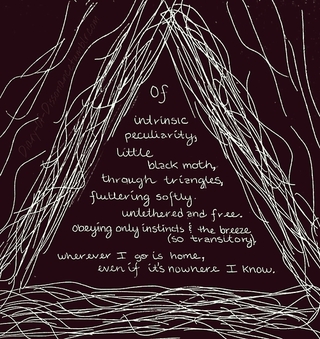 Of
intrinsic
peculiarity,
little
black moth,
through triangles,
fluttering softly.
untethered and free.
obeying only instincts & the breeze
(so transitory),
wherever I go is home,
even if it's nowhere I know.